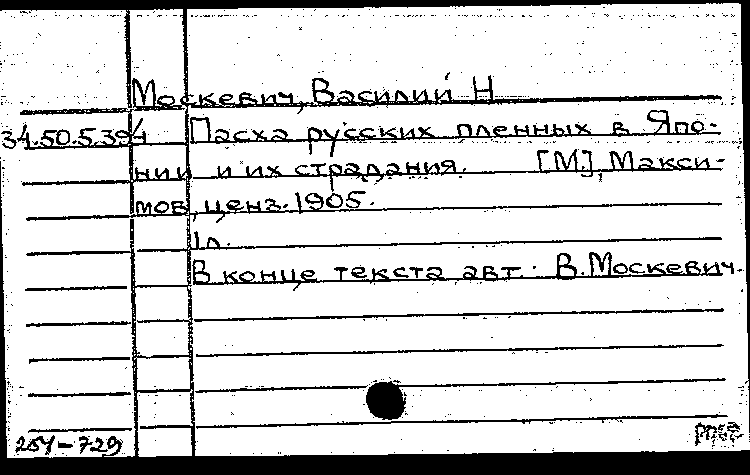 Москевич, Василий Н
34.50.5.394 Пасха русских пленных в Япо-
нии и их страдания. [М], Макси-
мов, ценз. 1905.
1л.
В конце текста авт.: В. Москевич.
254-729